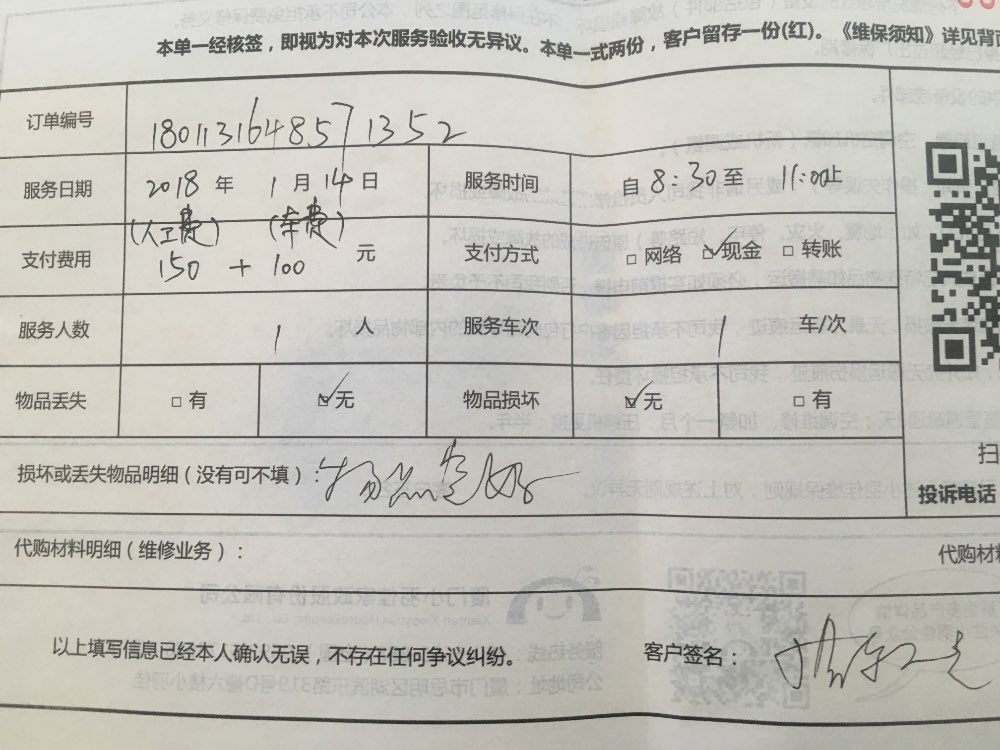 本单一经核签，即视为对本次服务验收无异议。本单一式两份，客户留存一份(红)。《维保须知》详见背面
订单编号 180113164857 1352
服务日期 2018 年 1 月 14 日 服务时间 自 8:30 至 11:00止
(人工费) (车费)
支付费用 150 + 100 元 支付方式 □ 网络 ☑ 现金 □ 转账
服务人数 1 人 服务车次 1 车/次
物品丢失 □ 有 ☑ 无 物品损坏 ☑ 无 □ 有
损坏或丢失物品明细（没有可不填）: 物品完好
扫
投诉电话
代购材料明细（维修业务）: 代购材料
以上填写信息已经本人确认无误，不存在任何争议纠纷。 客户签名: